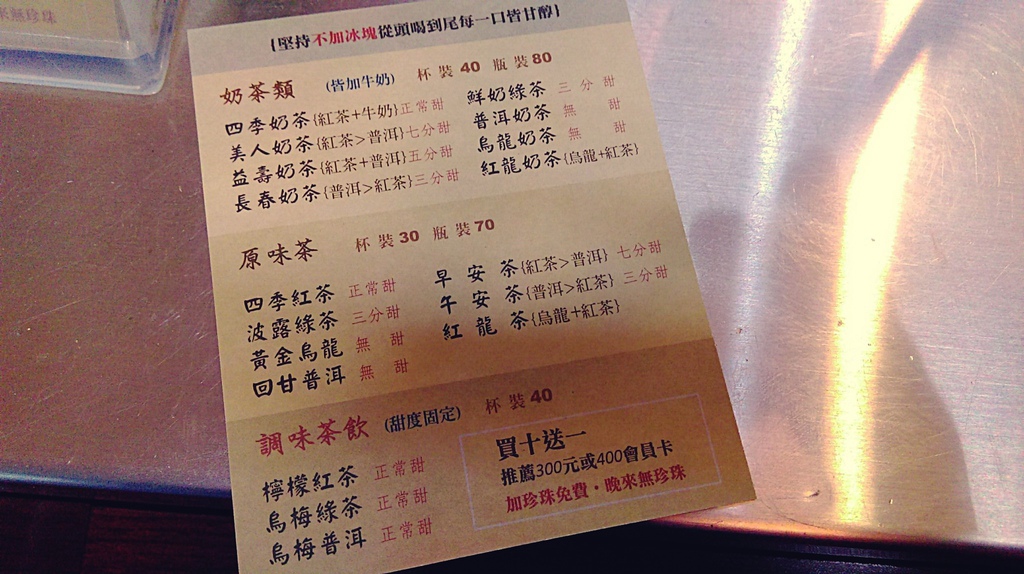 來無珍珠
{堅持不加冰塊從頭喝到尾每一口皆甘醇}
奶茶類 (皆加牛奶) 杯裝40 瓶裝80
四季奶茶{紅茶+牛奶}正常甜
美人奶茶{紅茶>普洱}七分甜
益壽奶茶{紅茶+普洱}五分甜
長春奶茶{普洱>紅茶}三分甜
鮮奶綠茶 三分甜
普洱奶茶 無 甜
烏龍奶茶 無 甜
紅龍奶茶{烏龍+紅茶}
原味茶 杯裝30 瓶裝70
四季紅茶 正常甜
波露綠茶 三分甜
黃金烏龍 無 甜
回甘普洱 無 甜
早安茶{紅茶>普洱} 七分甜
午安茶{普洱>紅茶} 三分甜
紅龍茶{烏龍+紅茶}
調味茶飲 (甜度固定) 杯裝40
檸檬紅茶 正常甜
烏梅綠茶 正常甜
烏梅普洱 正常甜
買十送一
推薦300元或400會員卡
加珍珠免費·晚來無珍珠